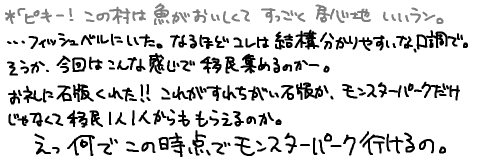 *「ピキー！この村は魚がおいしくて すっごく居心地いいラン。
…フィッシュベルにいた。なるほどコレは結構分かりやすいな、口調で。
そうか、今回はこんな感じで移民集めるのかー。
お礼に石版くれた!! これがすれちがい石版か、モンスターパークだけ
じゃなくて移民1人1人からももらえるのか。
えっ何でこの時点でモンスターパーク行けるの。